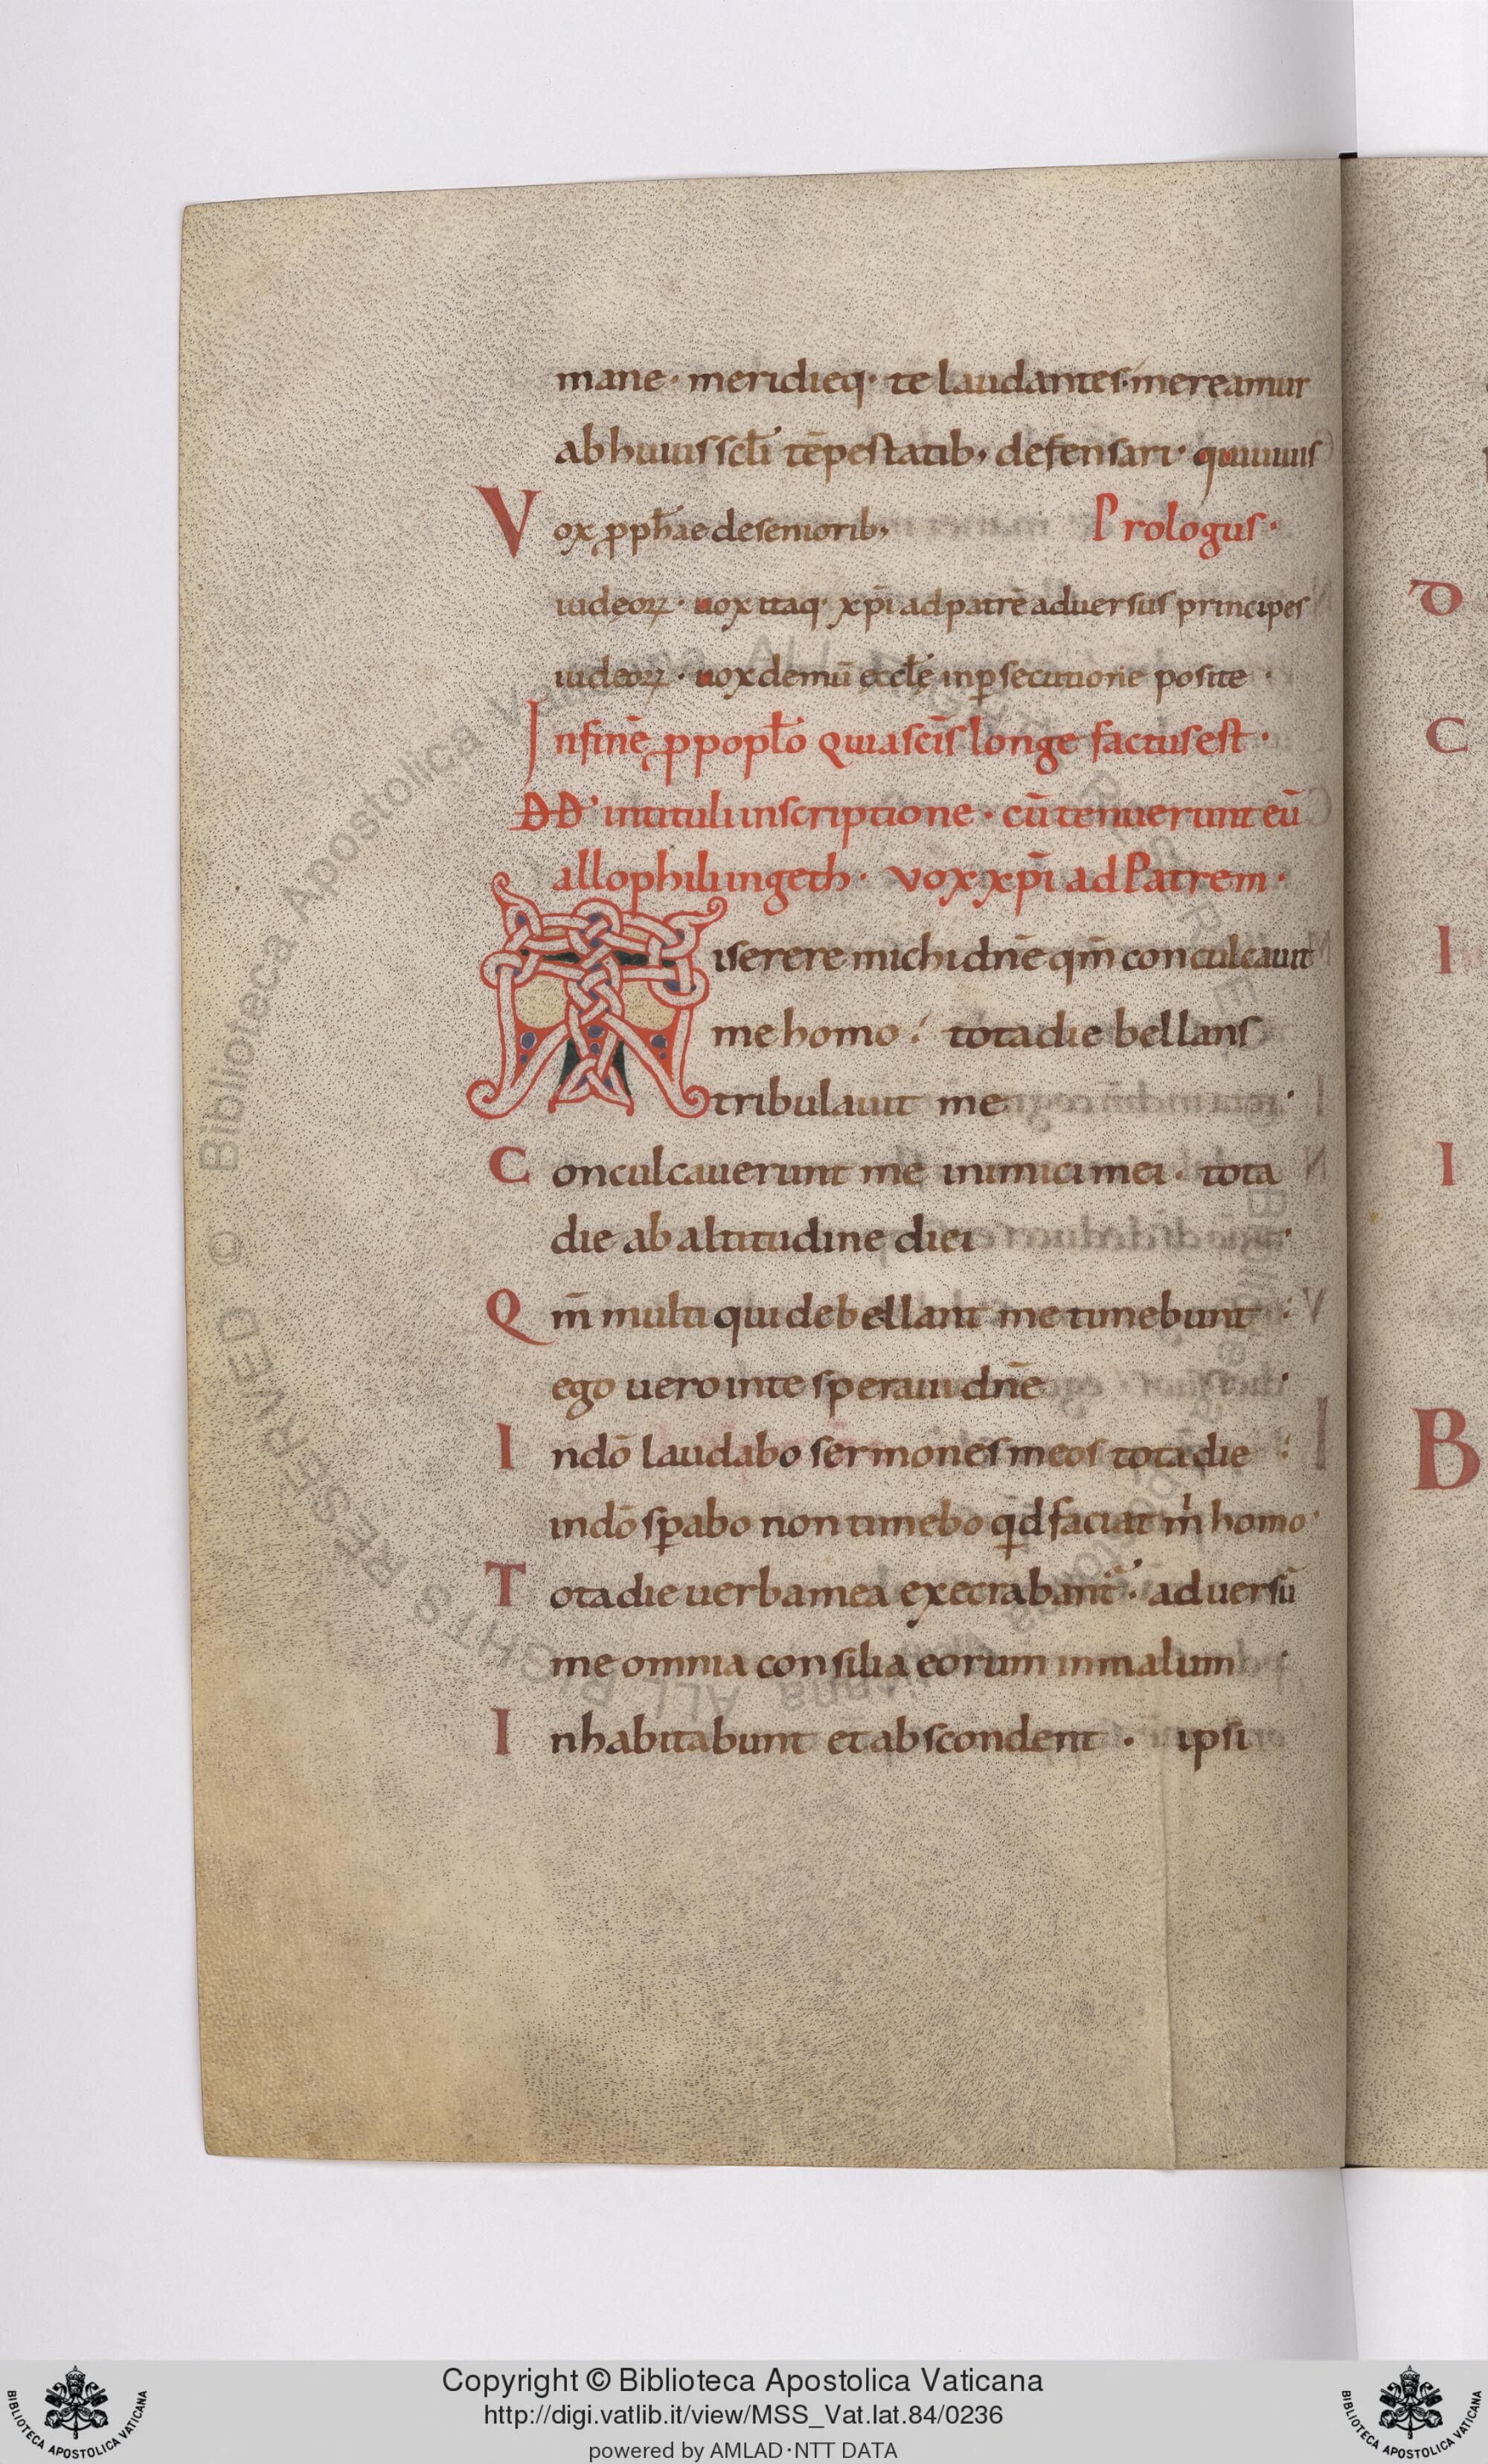 mane · meridieq · te laudantes · mereamur
ab huius scl̄i tēpestatib; defensari · qui uiuis
Vox ꝓpħae de seniorib; Prologus ·
iudeoꝝ · uox itaq · xp̄i ad patrē aduersus principes
iudeoꝝ · uox demū ęccl̄ę in ꝑsecutione posite ·
In finē ꝓ popl̄o Quia scīs longe factus est ·
DD · in tituli inscriptione · cū tenuerunt eū
allophili in geth · vox xp̄i ad Patrem ·
Miserere michi dn̄e qm̄ conculcauit
me homo : tota die bellans
tribulauit me ·
Conculcauerunt me inimici mei · tota
die ab altitudine diei ·
Qm̄ multi qui debellant me timebunt :
ego uero in te speraui dn̄e ·
In dō laudabo sermones meos tota die :
in dō sꝑabo non timebo qͥd faciat m̍ homo ·
Tota die uerba mea execrabant᷑ · aduersū
me omnia consilia eorum in malum ·
Inhabitabunt et abscondent · ipsi
D
C
I
I
B
© Biblioteca Apostolica Vaticana ALL RIGHTS RESERVED
Copyright © Biblioteca Apostolica Vaticana
http://digi.vatlib.it/view/MSS_Vat.lat.84/0236
powered by AMLAD·NTT DATA
BIBLIOTECA APOSTOLICA VATICANA
BIBLIOTECA APOSTOLICA VATICANA